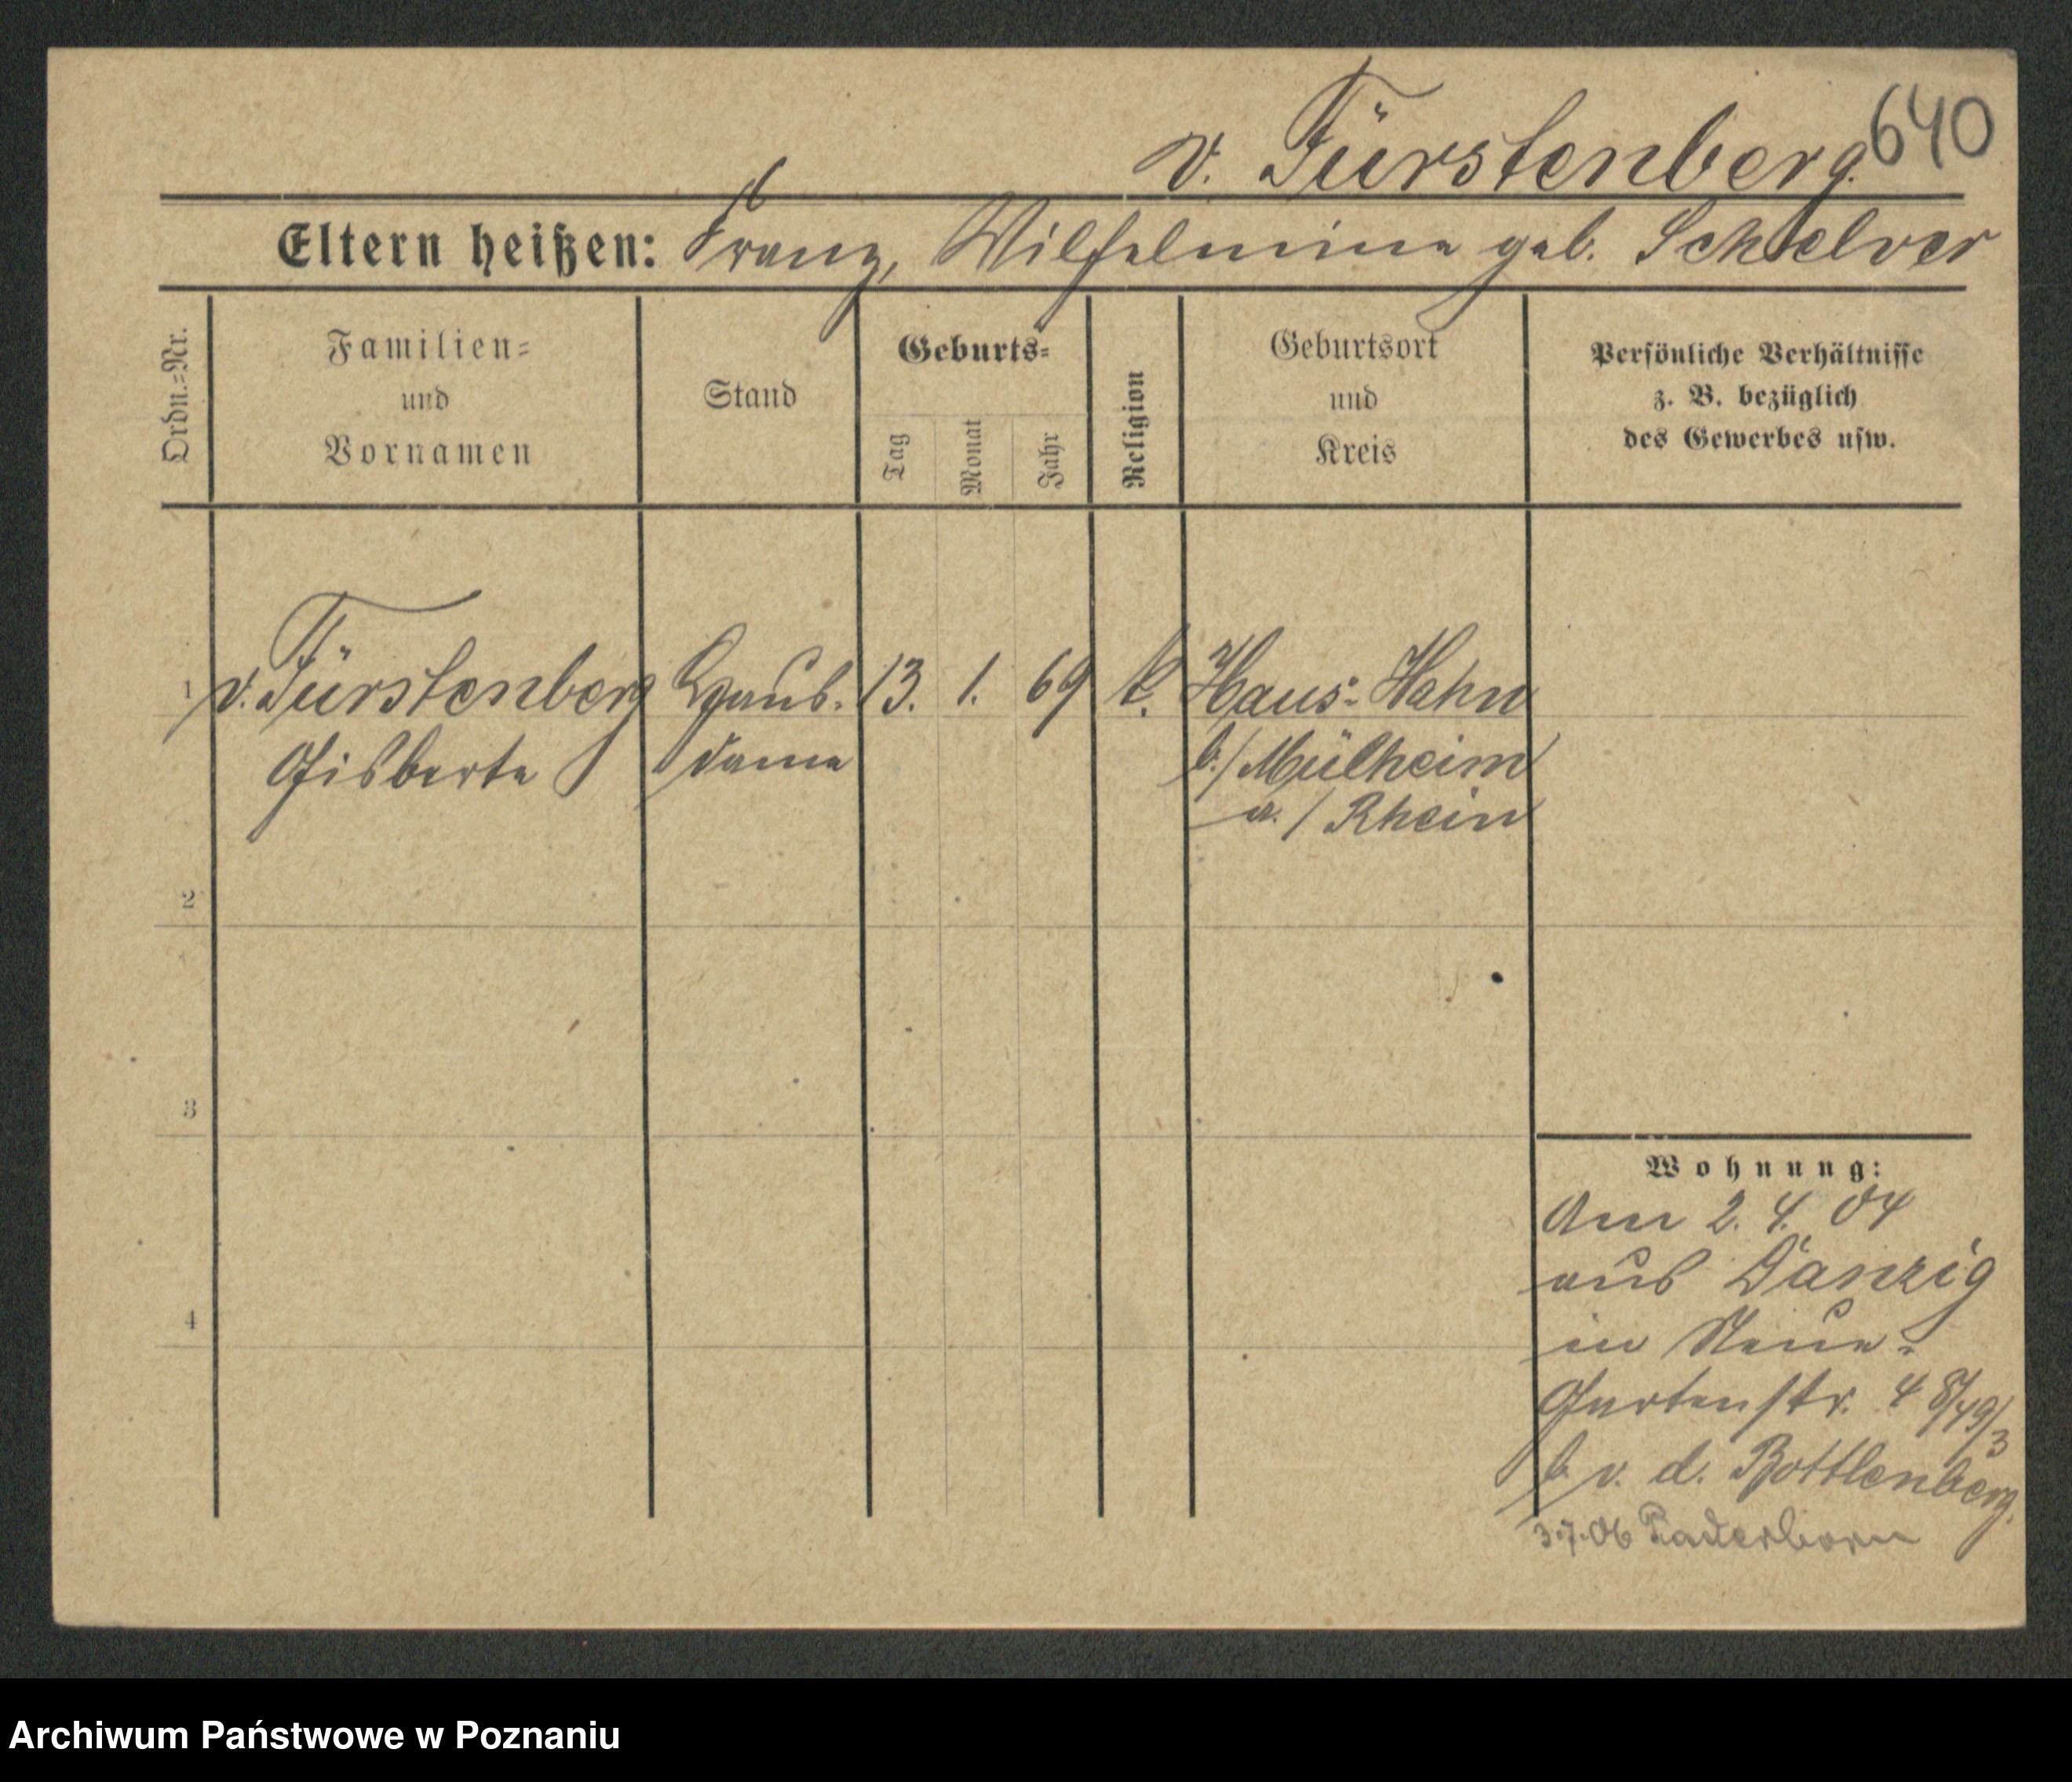 640
v. Fürstenberg.
Eltern heißen: Franz, Wilhelmine geb. Schelver
Ordn.=Nr.
Familien=
und
Vornamen
Stand
Geburts=
Tag
Monat
Jahr
Religion
Geburtsort
und
Kreis
Persönliche Verhältnisse
z. B. bezüglich
des Gewerbes usw.
1 v. Fürstenberg Hausdame 13. 1. 69 k. Haus= Hahn
Gisberta b./Mülheim
a./Rhein
2
3
4
Wohnung:
Am 2. 4. 04
aus Danzig
in Neue=
Gartenstr. 4
b v. d. Bottlenberg.
3.7.06 Paderborn
Archiwum Państwowe w Poznaniu